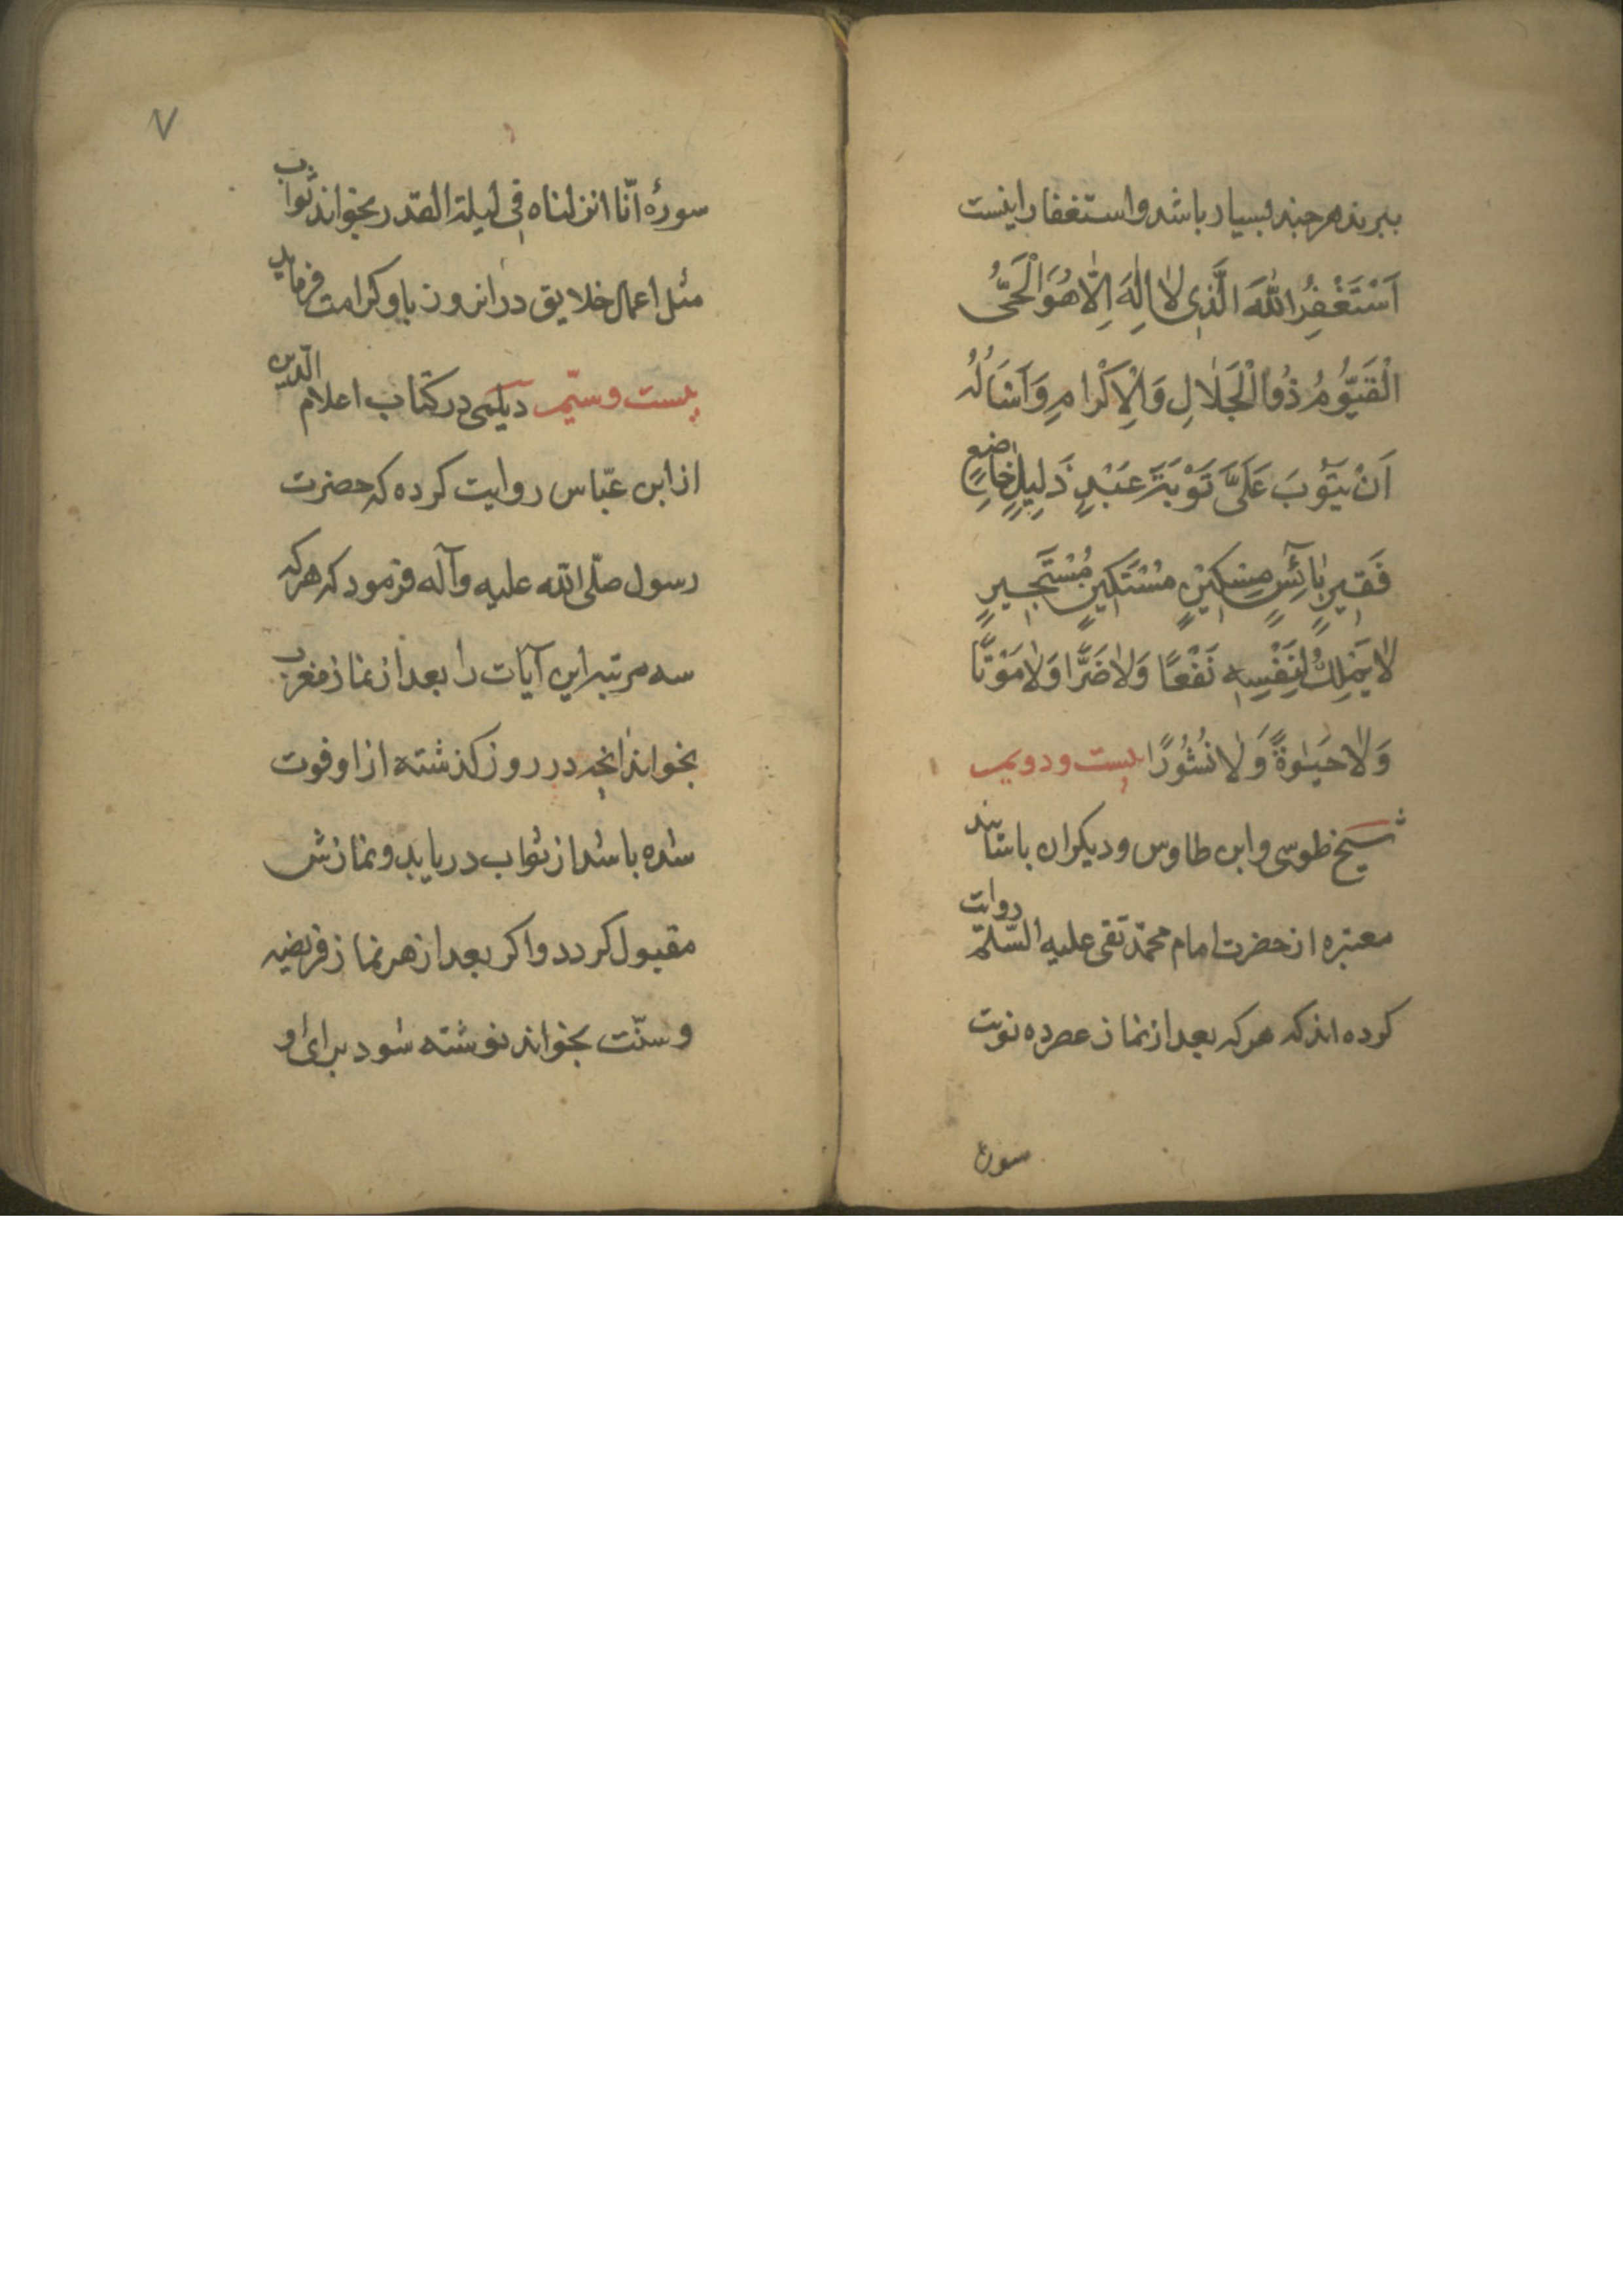 ببرند هر چند بسیار باشد و استغفار اینست
اَسْتَغْفِرُ اللّٰهَ الَّذِی لَا اِلٰهَ اِلَّا هُوَ الْحَیُّ
الْقَیُّومُ ذُو الْجَلَالِ وَالْاِکْرَامِ وَاَسْاَلُهُ
اَنْ یَتُوبَ عَلَیَّ تَوْبَةَ عَبْدٍ ذَلِیلٍ خَاضِعٍ
فَقِیرٍ بَائِسٍ مِسْکِینٍ مُسْتَکِینٍ مُسْتَجِیرٍ
لَا یَمْلِکُ لِنَفْسِهِ نَفْعًا وَلَا ضَرًّا وَلَا مَوْتًا
وَلَا حَیٰوةً وَلَا نُشُورًا بیست و دویم
شیخ طوسی و ابن طاوس و دیکران باسانید
معتبره از حضرت امام محمّد تقی علیه السّلم روایت
کرده اند که هر که بعد از نماز عصر ده نوبت
سوره
۷
سورهٔ انّا انزلناه فی لیلة القدر بخواند ثواب
مثل اعمال خلایق در انروز باو کرامت فرماید
بیست و سیّم دیلمی در کتاب اعلام الدّین
از ابن عبّاس روایت کرده که حضرت
رسول صلّی الله علیه وآله فرمود که هر که
سه مرتبه این آیات را بعد از نماز مغرب
بخواند انچه در روز کذشته از او فوت
شده باشد از ثواب دریابد و نمازش
مقبول کردد و اکر بعد از هر نماز فریضه
و سنّت بخواند نوشته شود برای او